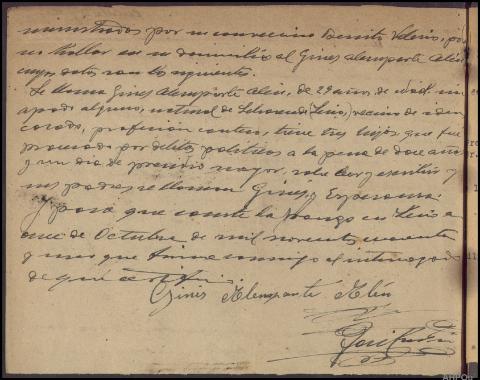 ministrados por su convecino Benito Valeiro, por
no hallar en su domicilio al Gines Alemparte Alén
cuyos datos son los siguientes.
Se llama Gines Alemparte Alén, de 29 años de edad, sin
apodo alguno, natural de (Lein), vecino de idem
casado, profesión cantero, tiene tres hijos, que fue
procesado por delitos políticos a la pena de doce años
y un dia de presidio mayor, sabe leer y escribir y
sus padres se llaman Gines, y Esperanza.
Y para que conste la pongo en Leiro a
once de Octubre de mil novecientos cuarenta
y uno que firma conmigo el interrogado
de que certifico.
Ginés Alemparte Alén
José
AHPOu